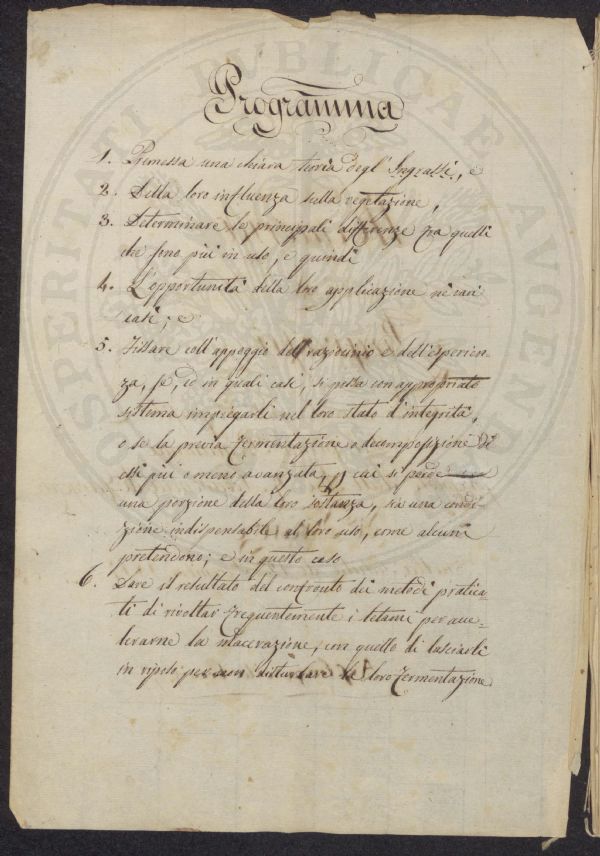 Programma
1. Premessa una chiara teoria degl'Ingrassi, e
2. Della loro influenza sulla vegetazione,
3. Determinare le principali differenze fra quelli
che sono più in uso, e quindi
4. L'opportunità della loro applicazione ne varj
casi; e
5. Fissare coll'appoggio del raziocinio e dell'esperien-
za, se, ed in quali casi, si possa con appropriato
sistema impiegarli nel loro stato d'integrità,
o se la previa fermentazione o decomposizione di
essi più o meno avanzata, p cui si perde
una porzione della loro sostanza, sia una condi-
zione indispensabile al loro uso, come alcuni
pretendono; e in questo caso
6. Dare il resultato del confronto dei metodi pratica-
ti di rivoltar frequentemente i letami per acce-
lerarne la macerazione, con quello di lasciarli
in riposo per non disturbare la loro fermentazione
PROSPERITATI PUBLICAE AUGENDAE